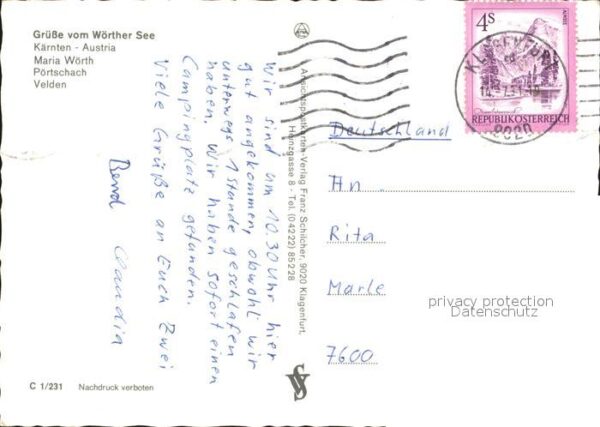 Grüße vom Wörther See
Kärnten - Austria
Maria Wörth
Pörtschach
Velden
Wir sind um 10.30 Uhr hier
gut angekommen, obwohl wir
unterwegs 1 Stunde geschlafen
haben. Wir haben sofort einen
Campingplatz gefunden.
Viele Grüße an Euch Zwei
Bernd Claudia
C 1/231 Nachdruck verboten
Ansichtspostkarten-Verlag Franz Schilcher, 9020 Klagenfurt,
Heinzgasse 8 - Tel. (04222) 85228
4S
REPUBLIK ÖSTERREICH
KLAGENFURT
9020
Deutschland
An
Rita
Marle
7600
privacy protection
Datenschutz